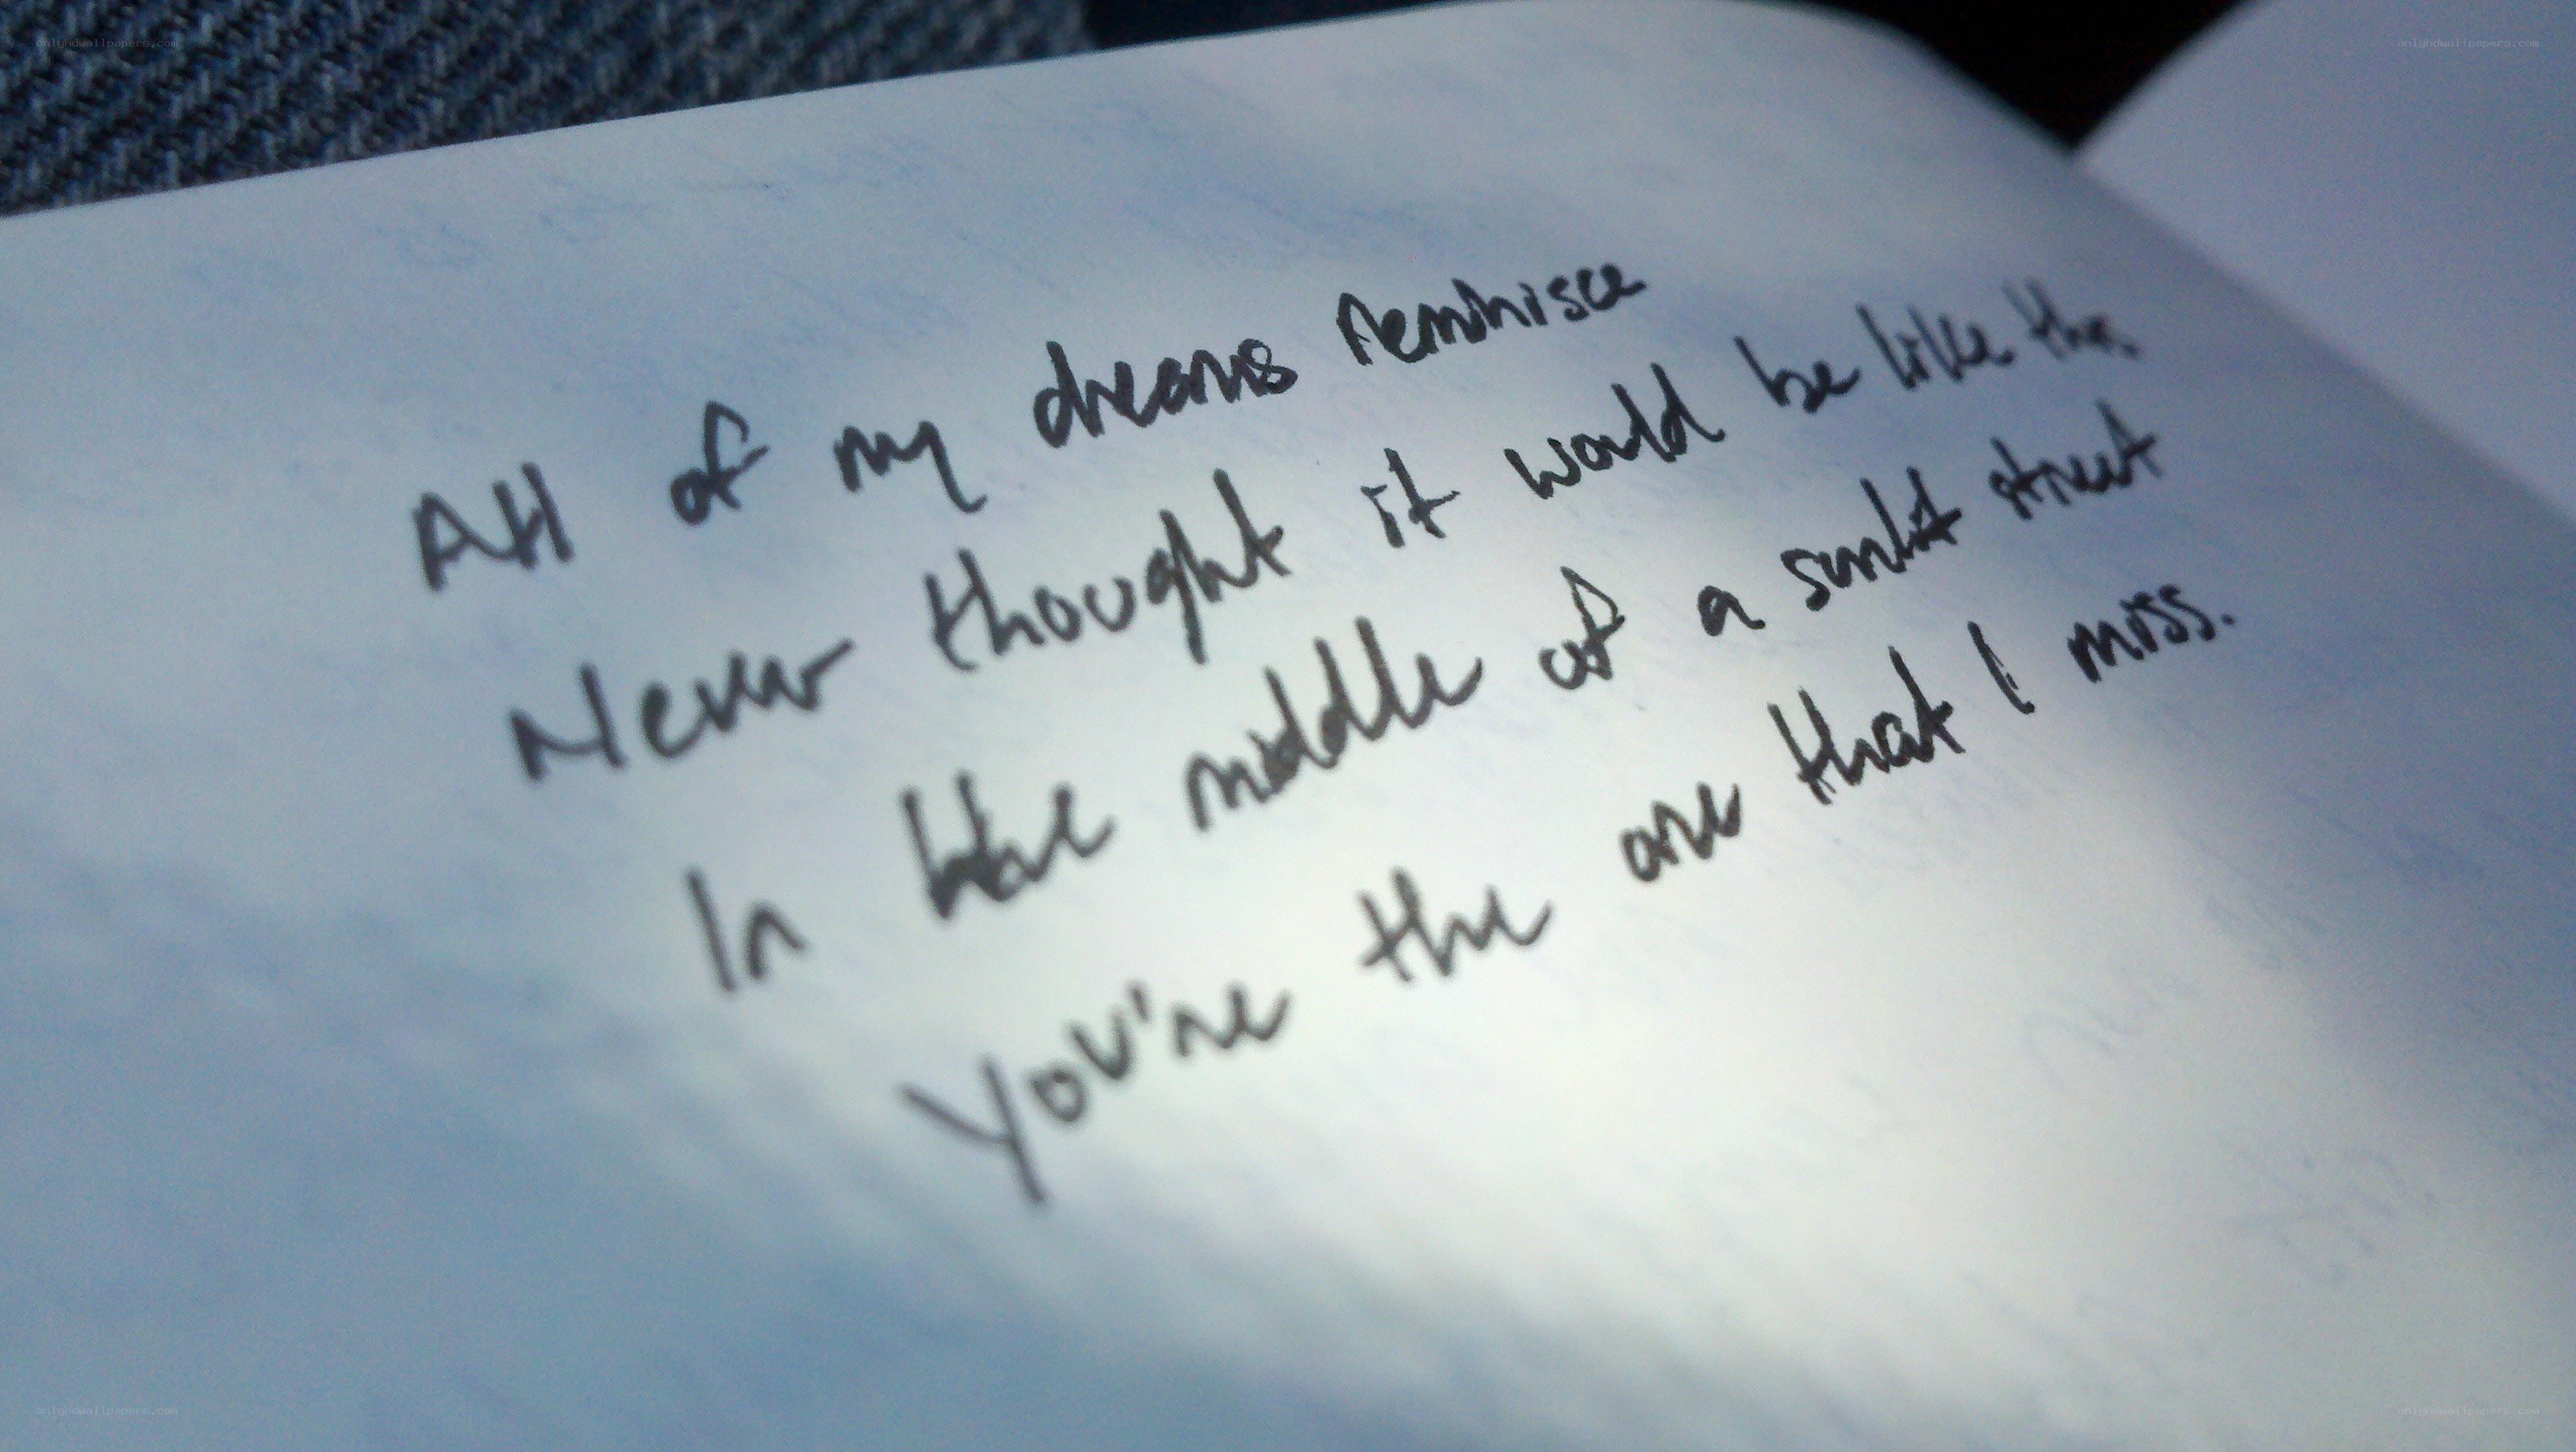 onlyhdwallpapers.com
onlyhdwallpapers.com
All of my dreams reminisce
Never thought it would be like this.
In the middle of a sunlit street
You're the one that I miss.
onlyhdwallpapers.com
onlyhdwallpapers.com